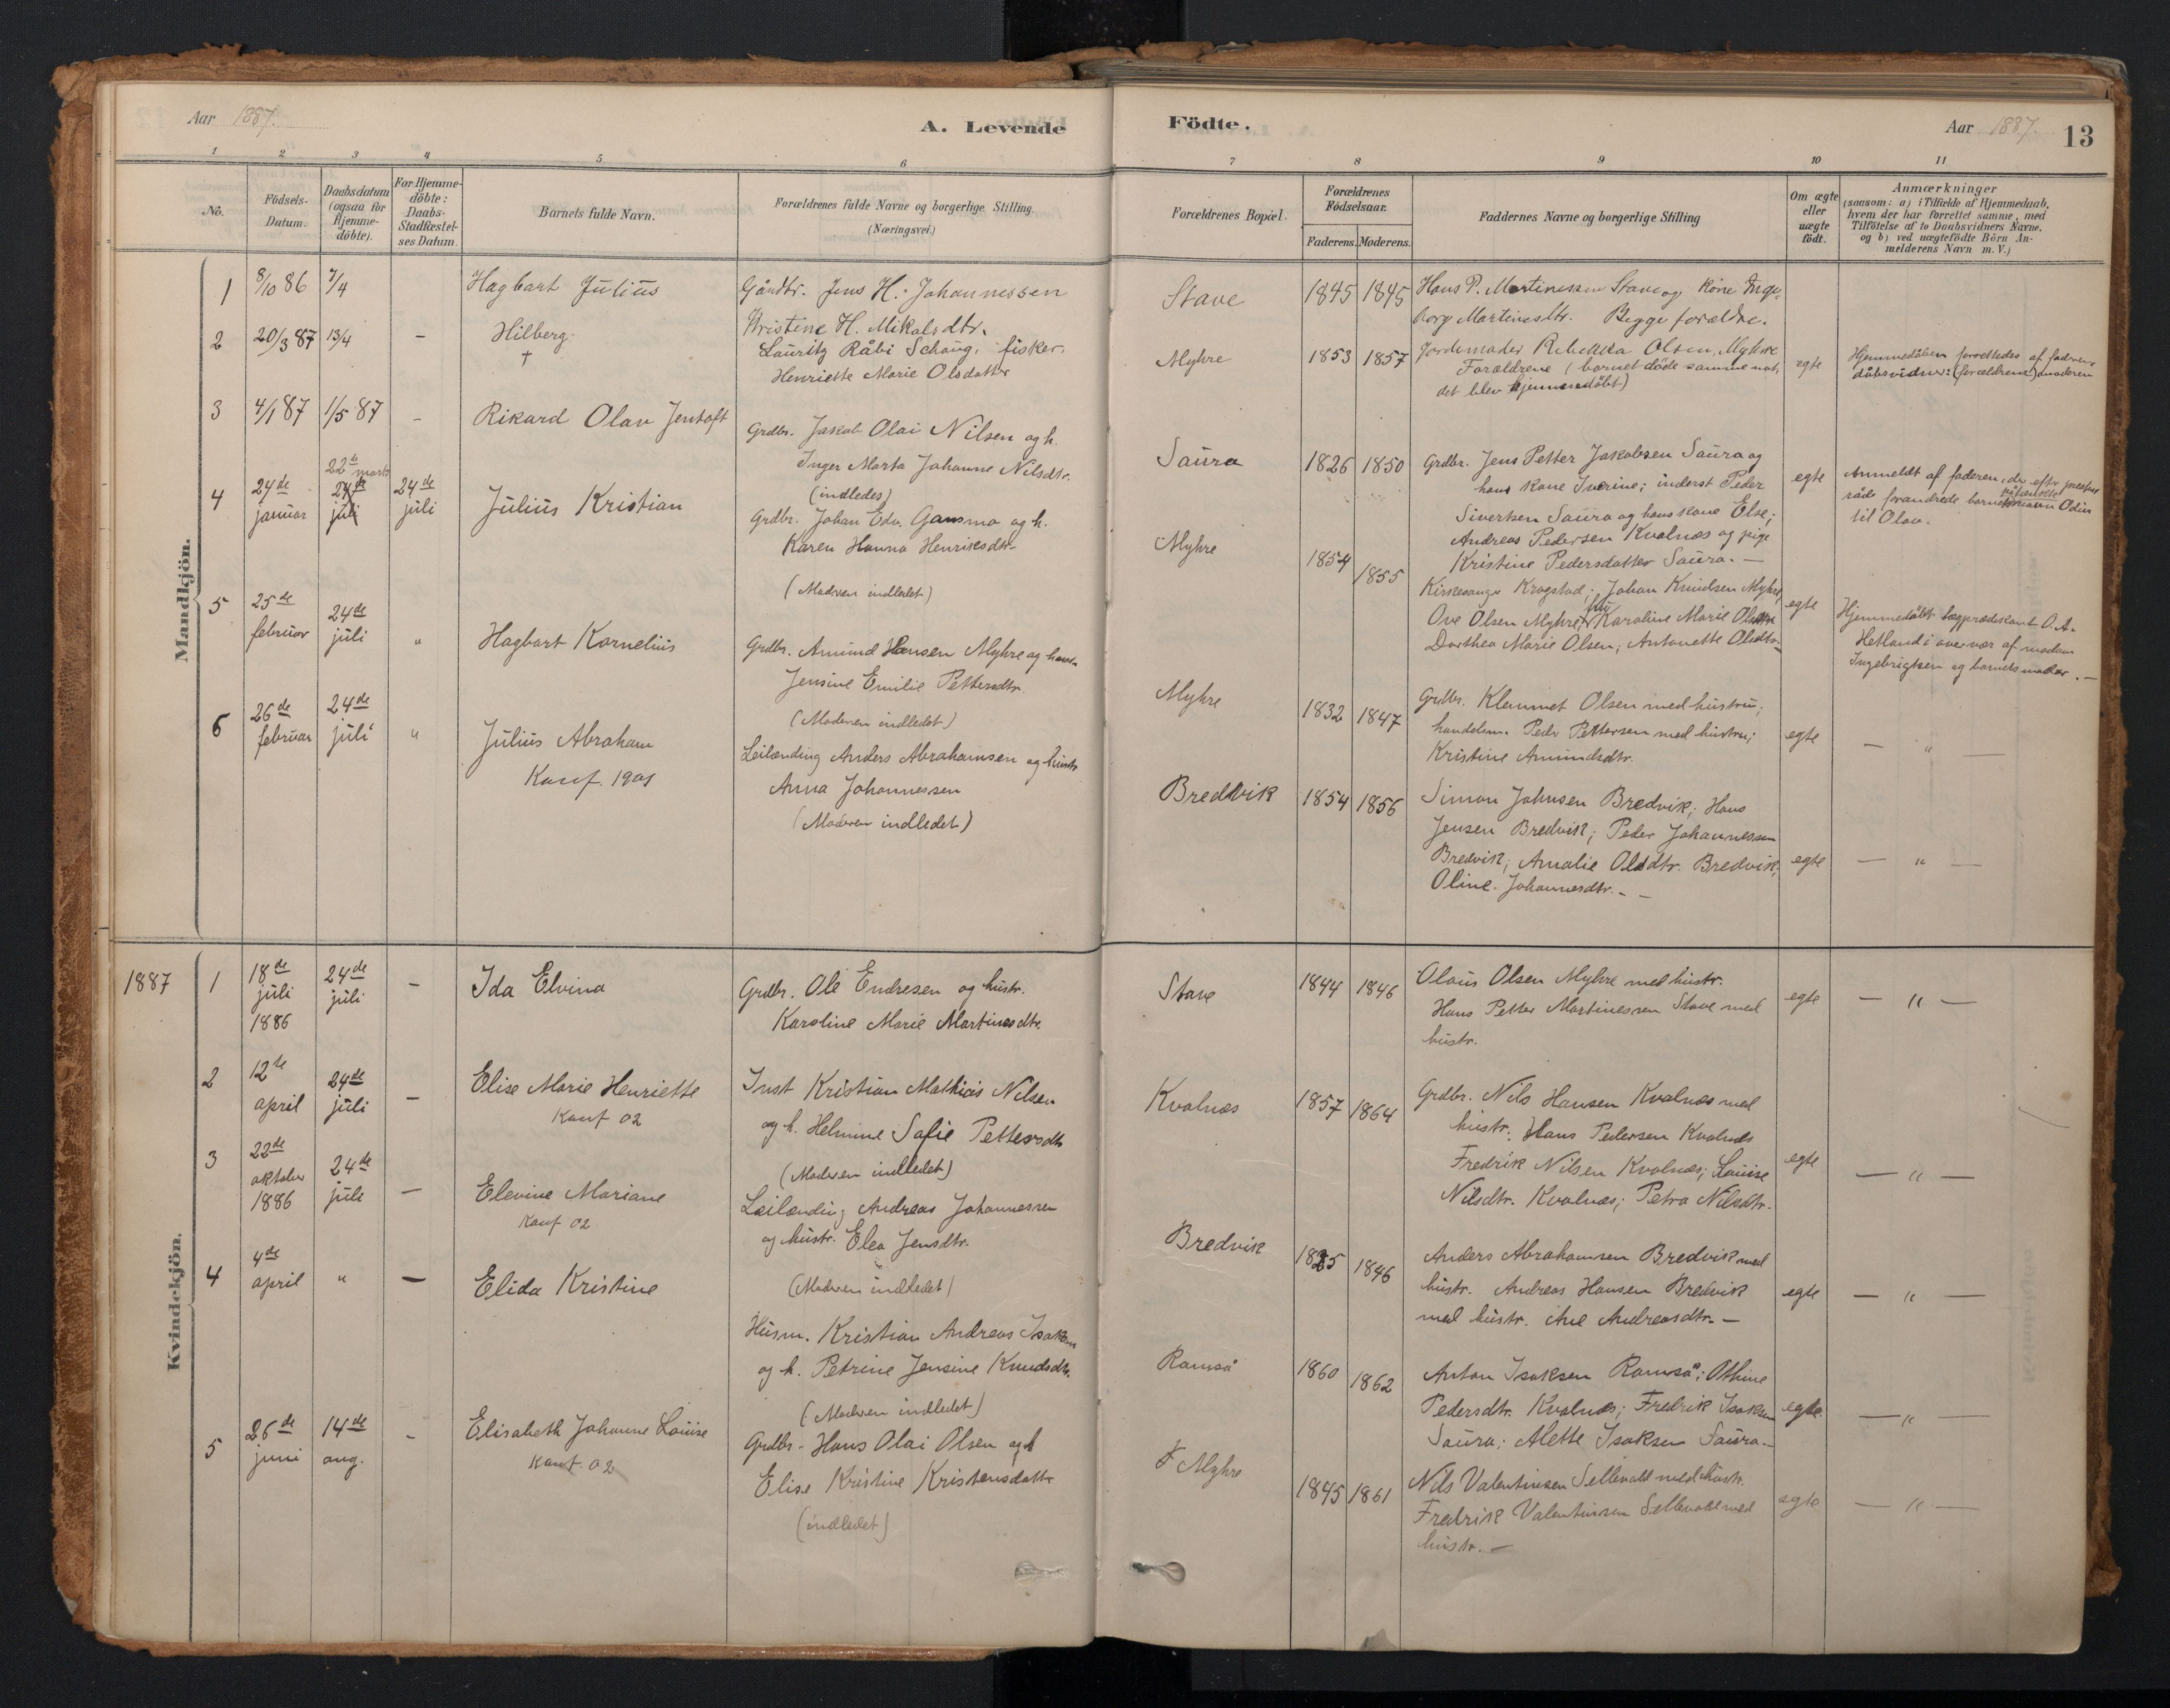 Aar 1887.
A. Levende
Födte.
Aar 1887.
13
1 2 3 4 5 6 7 8 9 10 11
No.
Födsels-
Datum.
Daabsdatum
(ogsaa for
Hjemme-
döbte).
For Hjemme-
döbte:
Daabs-
Stadfæstel-
ses Datum.
Barnets fulde Navn.
Forældrenes fulde Navne og borgerlige Stilling
(Næringsvei.)
Forældrenes Bopæl.
Forældrenes
Födselsaar.
Faderens. Moderens.
Faddernes Navne og borgerlige Stilling
Om ægte
eller
uægte
födt.
Anmærkninger
(saasom: a) i Tilfælde af Hjemmedaab,
hvem der har forrettet samme, med
Tilföielse af to Daabsvidners Navne.
og b) ved uægtefödte Börn An-
melderens Navn m. V.)
Mandkjön.
1 8/10 86 7/4
Hagbart Julius
Gårdbr. Jens H. Johannessen
Kristine H. Mikalsdtr.
Stave
1845 1845
Hans P. Martinessen Stave og kone Inge-
borg Martinesdtr. Begge forældre.
2 20/3 87 13/4 —
Hilberg
†
Lauritz Råbi Schaug, fisker.
Henriette Marie Olsdatter
Myhre
1853 1857
Jordemoder Rebekka Olsen, Myhre
Forældrene (barnet döde samme nat,
det blev hjemmedöbt)
egte
Hjemmedåben forrettedes af faderen
dåbsvidner: (forældrene) moderen
3 4/1 87 1/5 87 —
Rikard Olav Jentoft
Grdbr. Jakob Olai Nilsen og h.
Inger Marta Johanne Nilsdtr.
(indledes)
Saura
1826 1850
Grdbr. Jens Petter Jakobsen Saura og
hans kone Iverine; inderst Peder
Sivertsen Saura og hans kone Else;
Andreas Pedersen Kvalnæs og pige
Kristine Pedersdatter Saura. —
egte
Anmeldt af faderen, der efter prestens
råd forandrede barnets Odin
til Olav.
4 24de
januar
22de marts
24de
juli
24de
juli
Julius Kristian
Grdbr. Johan Edv. Gansmo og h.
Karen Hanna Henriksdtr.
(Moderen indledet)
Myhre
1854 1855
Kirkesanger Krogstad; Johan Knudsen Myhre,
Ove Olsen Myhre, Karoline Marie Olsdtr.
Dorthea Marie Olsen, Antonette Olsdtr.
egte
Hjemmedöbt lægprædikant O. A.
Hetland i overvær af madam
Ingebrigtsen og barnets moder. —
5 25de
februar
24de
juli
"
Hagbart Kornelius
Grdbr. Amund Hansen Myhre og
Jensine Emilie Pettersdtr.
(Moderen indledet)
Myhre
1832 1847
Grdbr. Klemmet Olsen med hustru;
handelsm. Peder Pettersen med hustru;
Kristine Amundsdtr.
egte
— " —
6 26de
februar
24de
juli
"
Julius Abraham
Konf. 1901
Leilænding Anders Abrahamsen og hustr.
Anna Johannessen
(Moderen indledet)
Bredvik
1854 1856
Simon Johnsen Bredvik; Hans
Jensen Bredvik; Peder Johannessen
Bredvik; Amalie Olsdtr. Bredvik;
Oline Johannesdtr. —
egte
— " —
Kvindekjön.
1887
1 18de
juli
1886
24de
juli
—
Ida Elvina
Grdbr. Ole Endresen og hustr.
Karoline Marie Martinesdtr.
Stave
1844 1846
Olaus Olsen Myhre med hustr.
Hans Petter Martinessen Stave med
hustr.
egte
— " —
2 12te
april
24de
juli
—
Elise Marie Henriette
Konf 02
Inst Kristian Mathias Nilsen
og h. Helmine Sofie Pettersdtr
(Moderen indledet)
Kvalnæs
1857 1864
Grdbr. Nils Hansen Kvalnæs med
hustr. Hans Pedersen Kvalnæs
Fredrik Nilsen Kvalnæs; Louise
Nilsdtr. Kvalnæs; Petra Nilsdtr.
egte
— " —
3 22de
oktober
1886
24de
juli
—
Elevine Mariane
Konf 02
Leilænding Andreas Johannessen
og hustr. Elea Jensdtr.
(Moderen indledet)
Bredvik
1846
Anders Abrahamsen Bredvik med
hustr. Andreas Hansen Bredvik
med hustr. Ane Andreasdtr. —
egte
— " —
4 4de
april
"
—
Elida Kristine
Husm. Kristian Andreas Isaksen
og h. Petrine Jensine Knudsdtr.
(Moderen indledet)
Ramså
1860 1862
Anton Isaksen Ramså; Othine
Pedersdtr. Kvalnæs; Fredrik Isaksen
Saura; Alette Isaksen Saura —
egte.
— " —
5 26de
juni
14de
aug.
—
Elisabeth Johanne Louise
Konf. 02
Grdbr. Hans Olai Olsen og h
Elise Kristine Kristensdattr
(indledet)
Myhre
1845 1861
Nils Valentinsen Sellevold med hustr.
Fredrik Valentinsen Sellevold med
hustr. —
egte
— " —